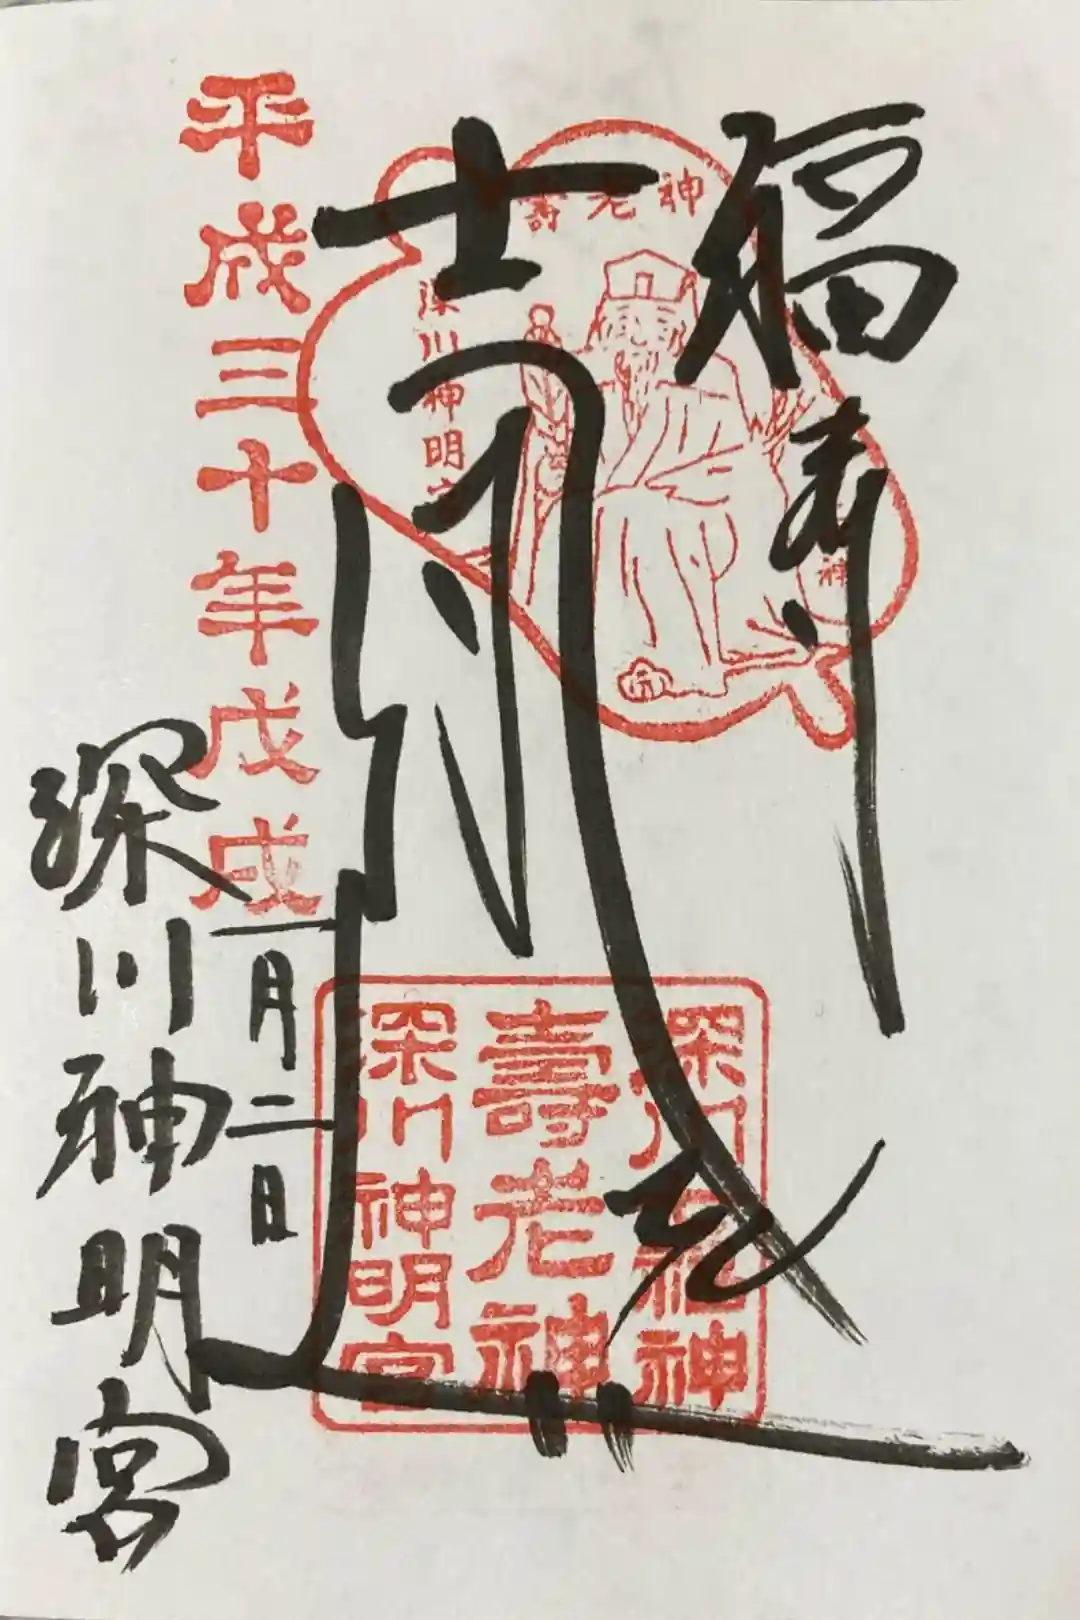 福寿
寿老神
深川神明宮
深川七福神
壽老神
深川神明宮
平成三十年戊戌
一月二日
深川神明宮